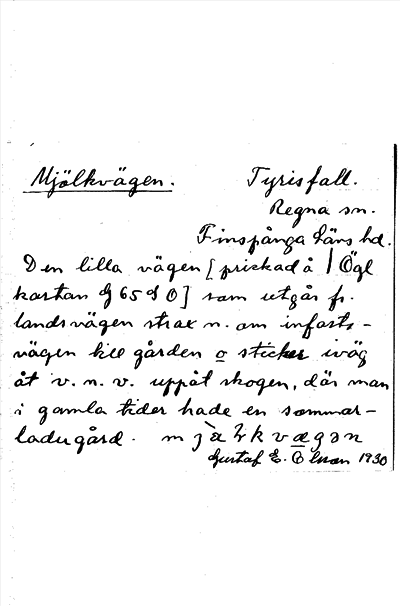 Mjölkvägen. Tyrisfall.
Regna sn.
Finspånga läns hd.
Den lilla vägen [prickad å Ögl
kartan 65 O] som utgår fr.
landsvägen strax n. om infarts-
vägen till gården o sticker iväg
åt v. n. v. uppåt skogen, där man
i gamla tider hade en sommar-
ladugård.
Gustaf E. Olson 1930